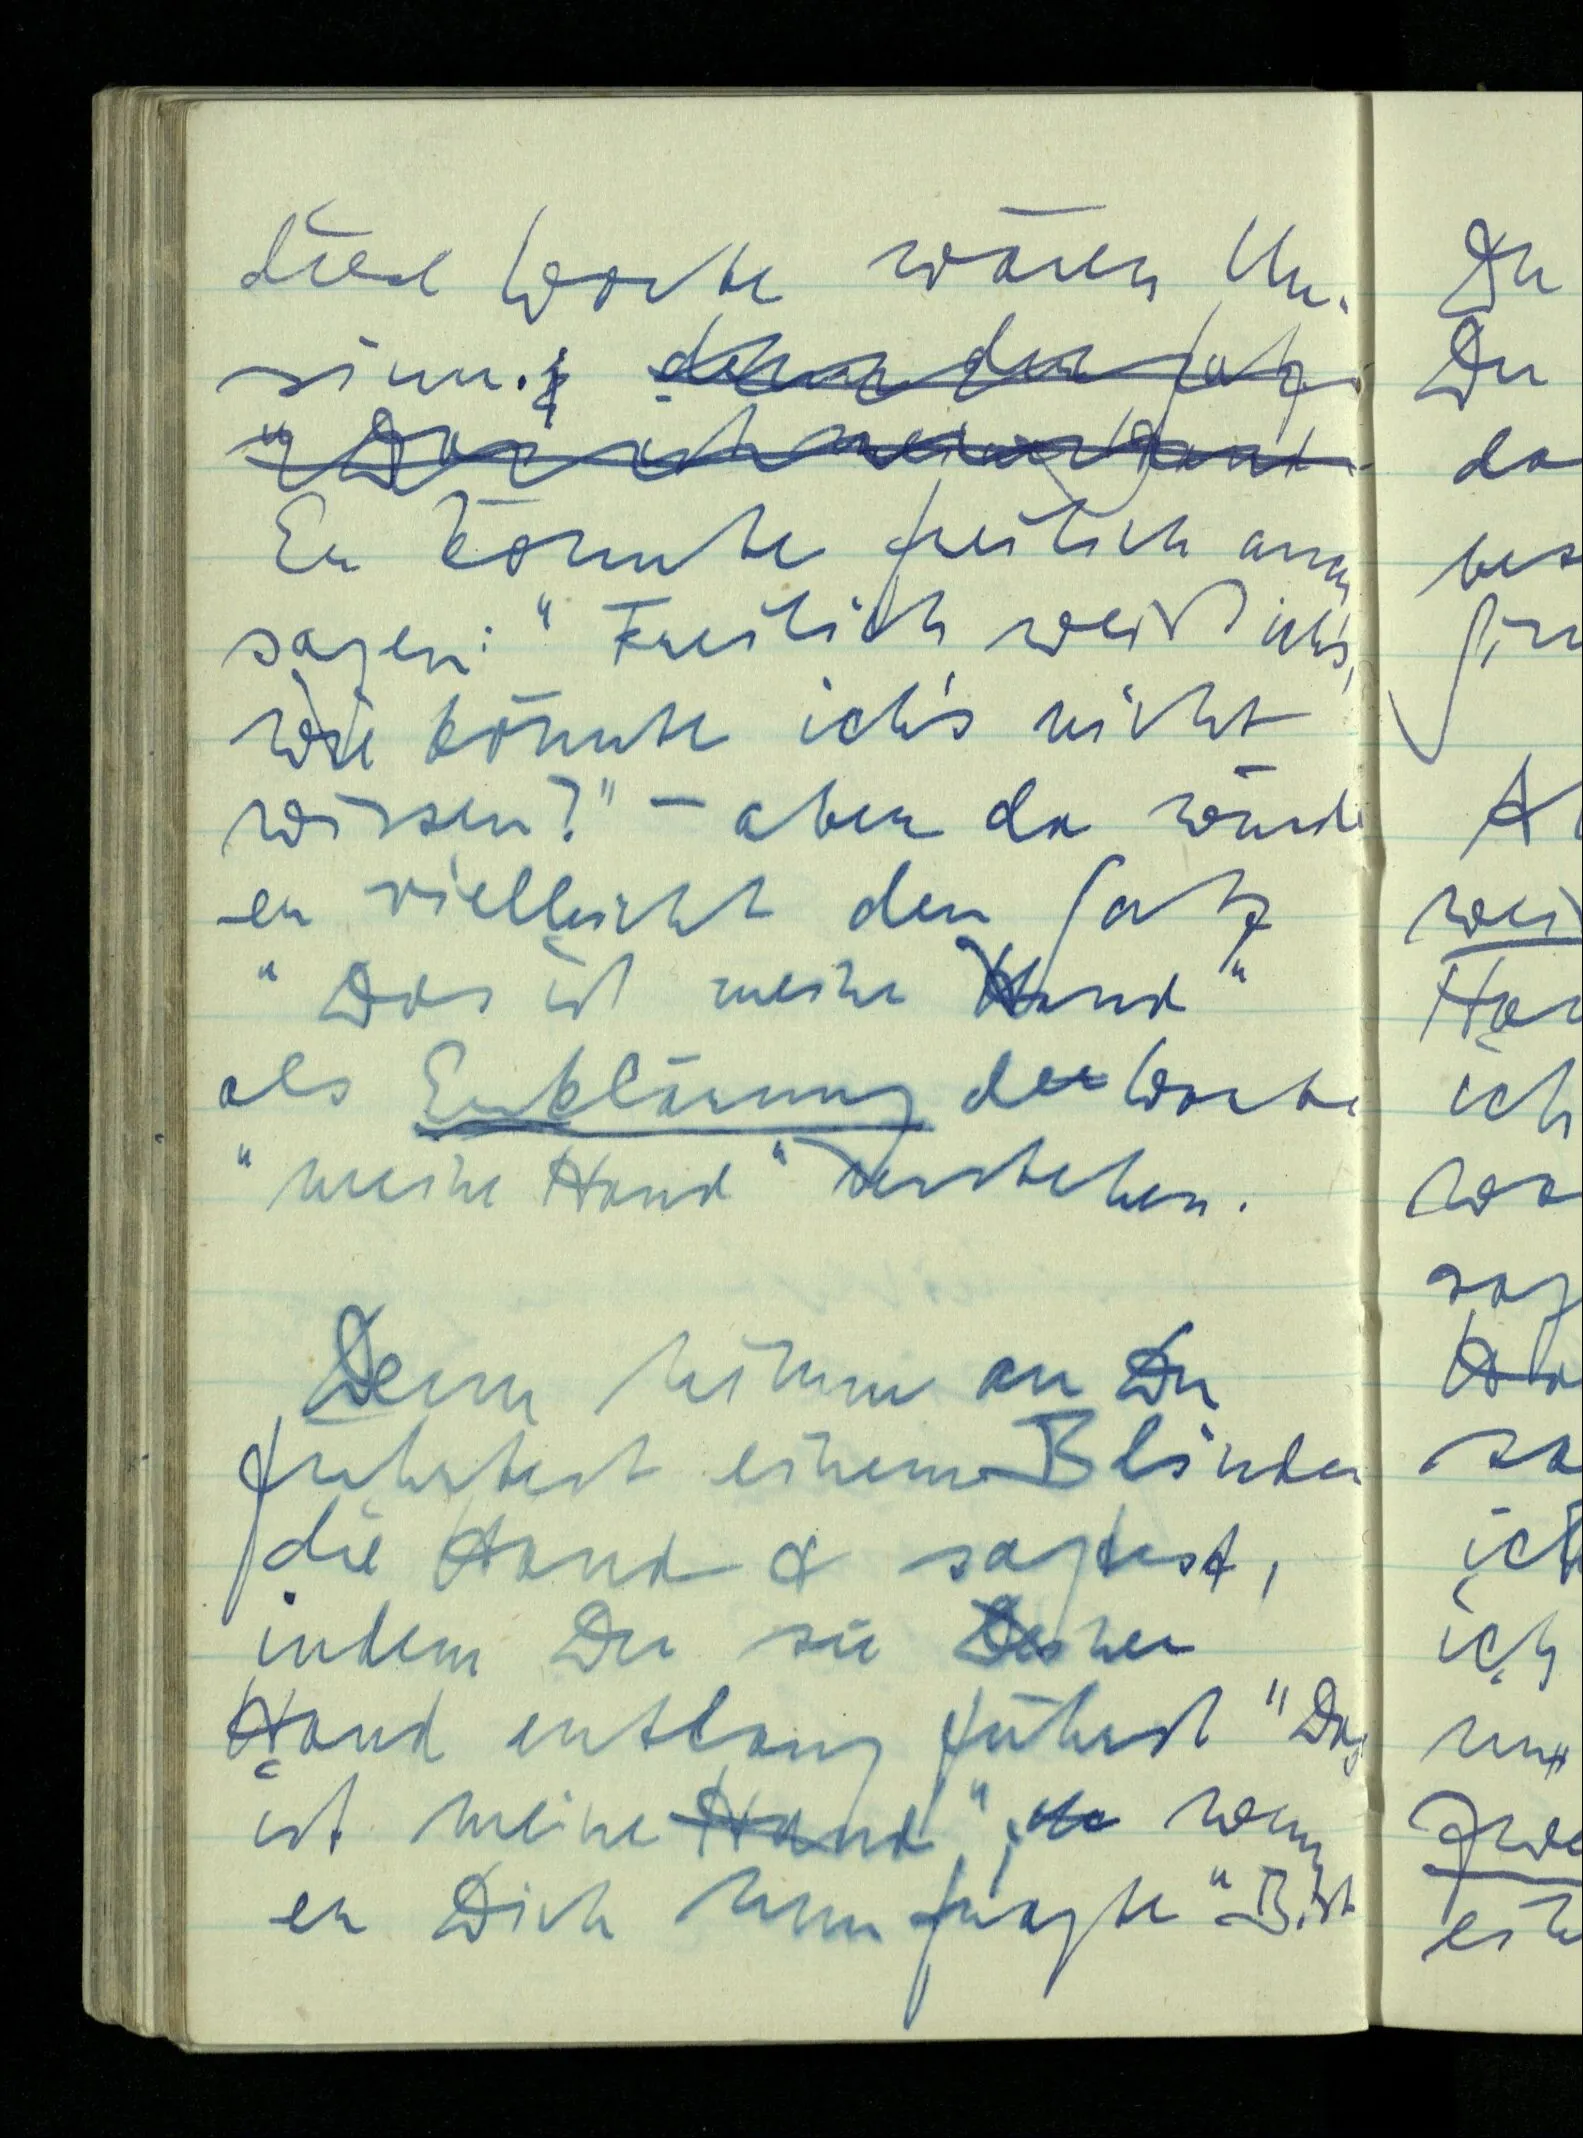 diese Worte wären Un-
sinn. denn der Satz
"Das ist meine Hand
Er könnte freilich auch
sagen: "Freilich weiß ich's,
wie könnte ich's nicht
wissen?" – aber da würde
er vielleicht den Satz
"Das ist meine Hand"
als Erklärung der Worte
"meine Hand" verstehen.
Denn nimm an Du
führtest einem Blinden
die Hand & sagtest,
indem Du sie Deiner
Hand entlang führst "Das
ist meine Hand"; wenn
er Dich nun fragte "Bist
Du
Du
A